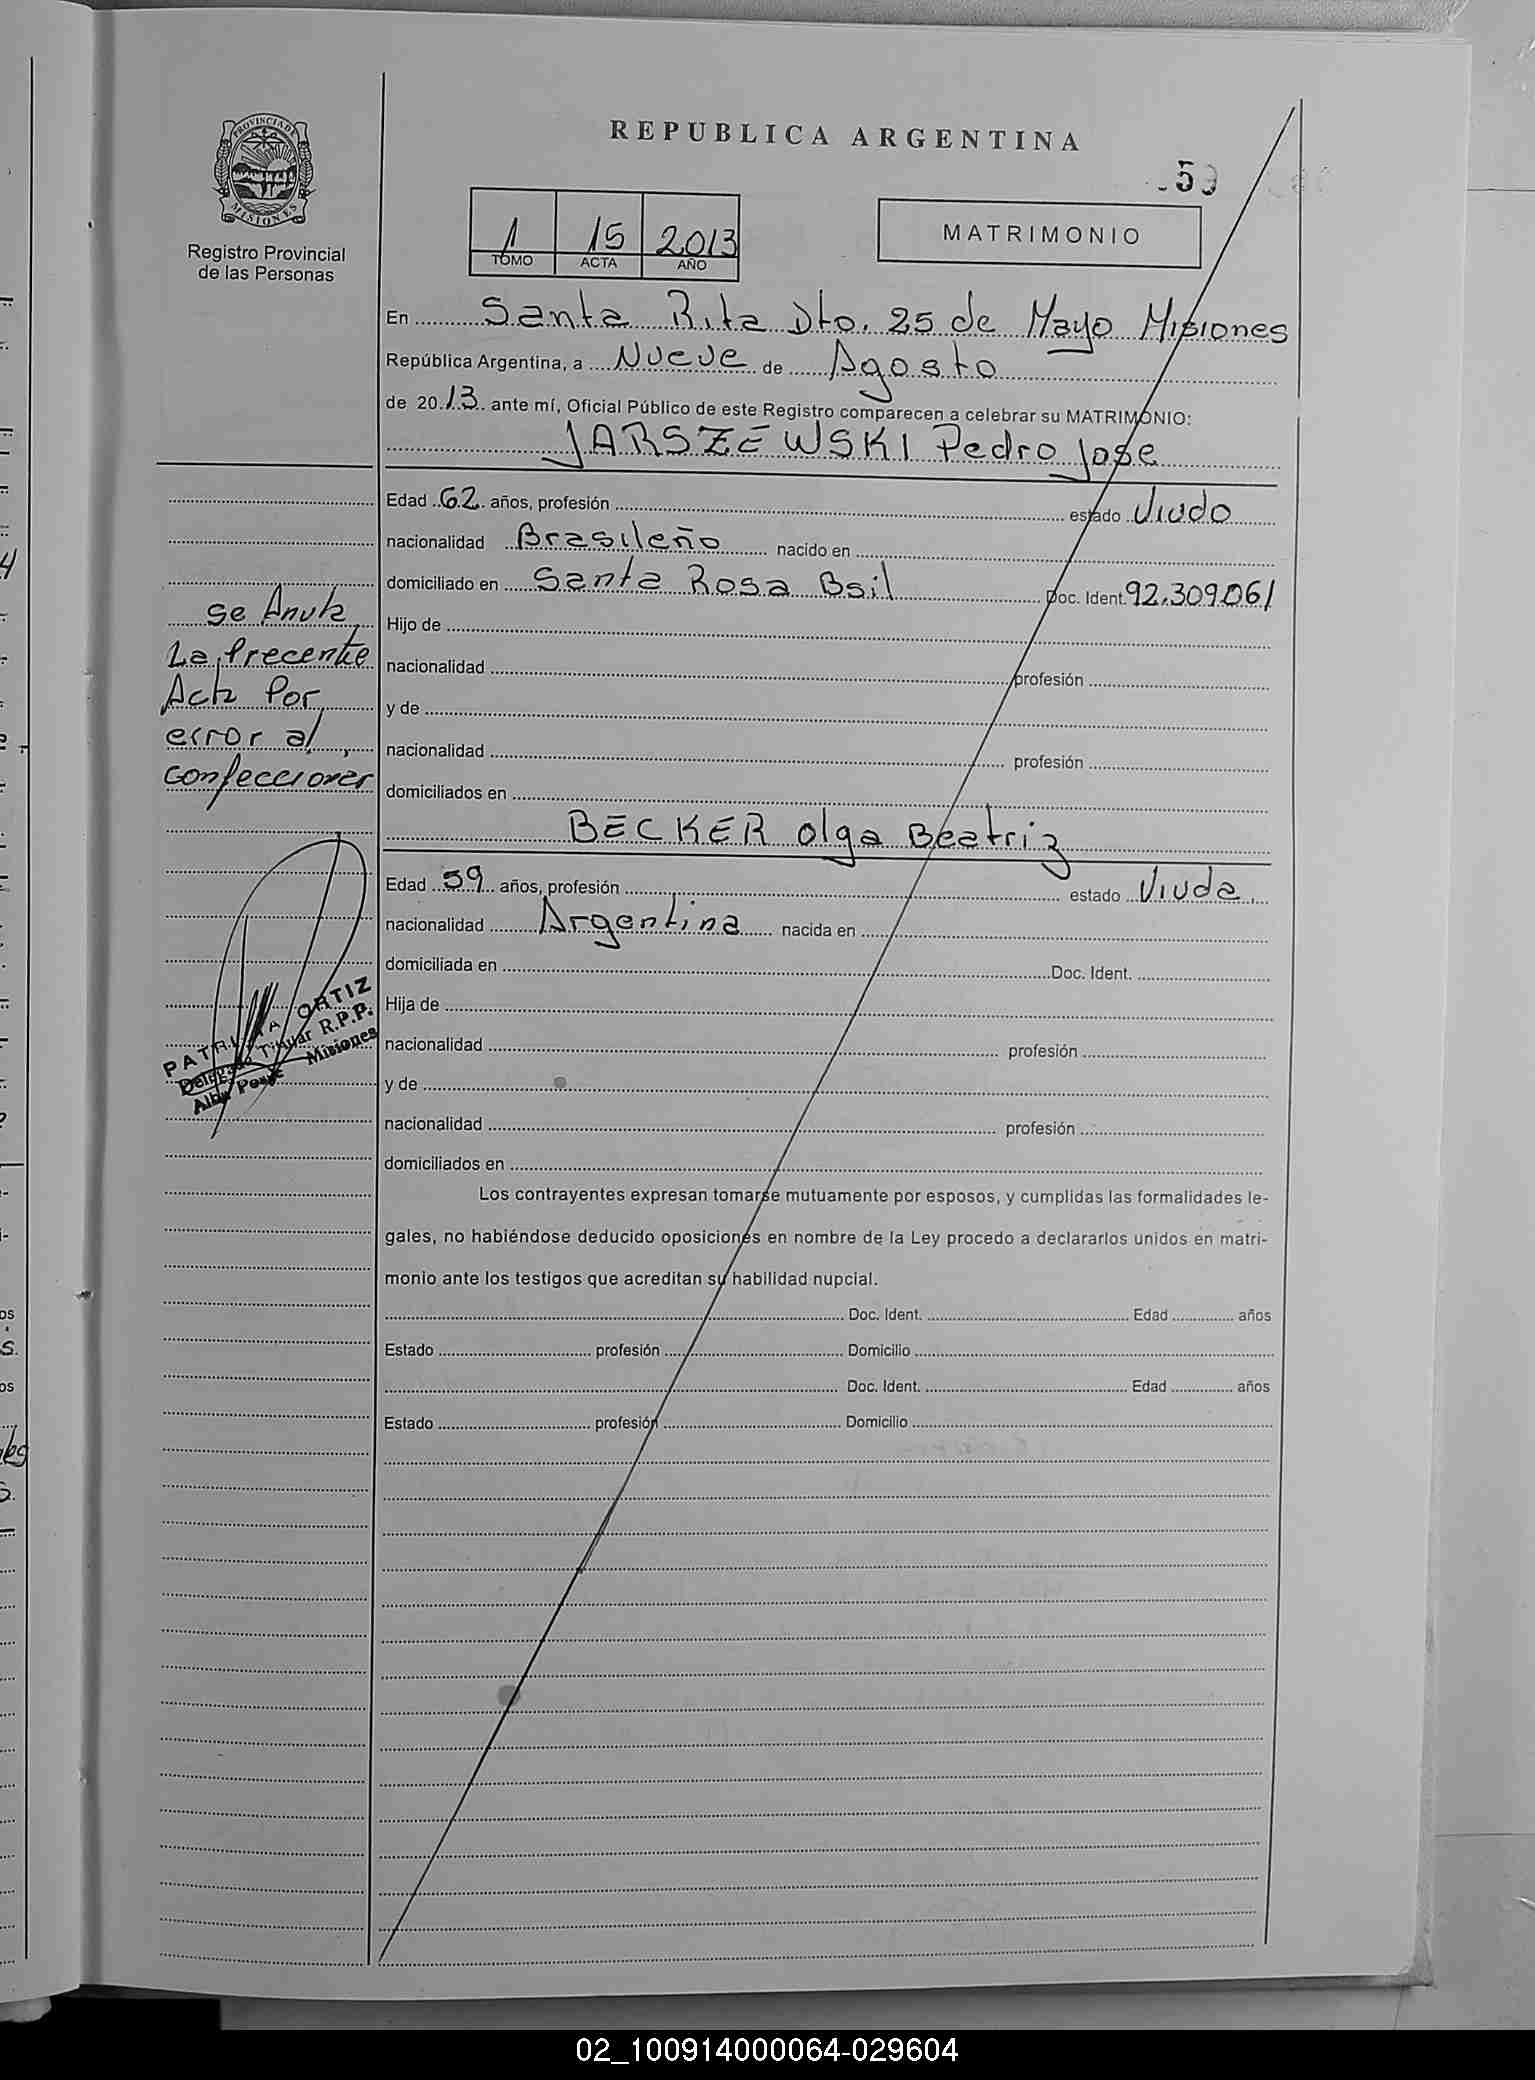 REPUBLICA ARGENTINA
59
PROVINCIA DE MISIONES
Registro Provincial
de las Personas
1 15 2013
TOMO ACTA AÑO
MATRIMONIO
En Santa Rita Dto. 25 de Mayo Misiones
República Argentina, a Nueve de Agosto
de 2013 ante mí, Oficial Público de este Registro comparecen a celebrar su MATRIMONIO:
JARSZEWSKI Pedro Jose
Edad 62 años, profesión estado Viudo
nacionalidad Brasileño nacido en
domiciliado en Santa Rosa Bsil Doc. Ident. 92.309061
Hijo de
nacionalidad profesión
y de
nacionalidad profesión
domiciliados en
BECKER Olga Beatriz
Edad 59 años, profesión estado Viuda.
nacionalidad Argentina nacida en
domiciliada en Doc. Ident.
Hija de
nacionalidad profesión
y de
nacionalidad profesión
domiciliados en
Los contrayentes expresan tomarse mutuamente por esposos, y cumplidas las formalidades le-
gales, no habiéndose deducido oposiciones en nombre de la Ley procedo a declararlos unidos en matri-
monio ante los testigos que acreditan su habilidad nupcial.
Doc. Ident. Edad años
Estado profesión Domicilio
Doc. Ident. Edad años
Estado profesión Domicilio
Se Anula
La Precente
Acta Por
error al
confeccionar
ORTIZ
Titular R.P.P.
Misiones
02_100914000064-029604